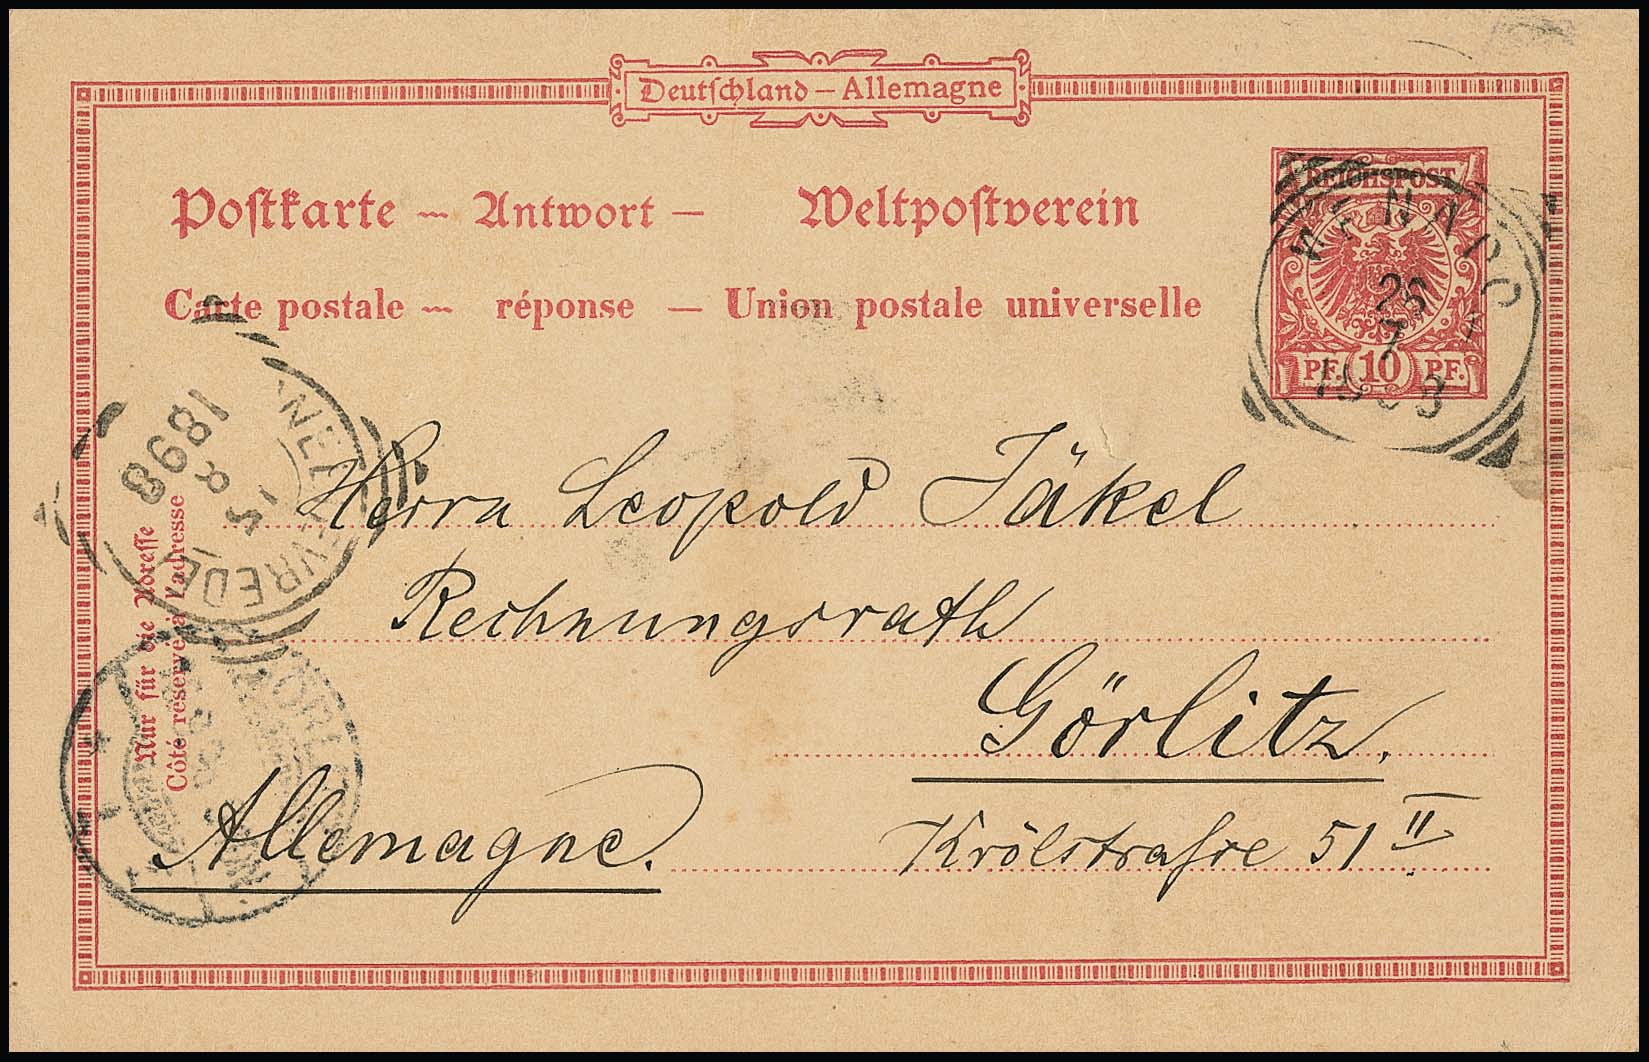 Deutschland – Allemagne
Postkarte — Antwort — Weltpostverein
Carte postale — réponse — Union postale universelle
REICHSPOST
PF. 10 PF.
7
1898
8
Herrn Leopold Jäkel
Rechnungsrath
Görlitz.
Krölstraße 51 II
Allemagne.
Nur für die Adresse
Côté réservé à l'adresse